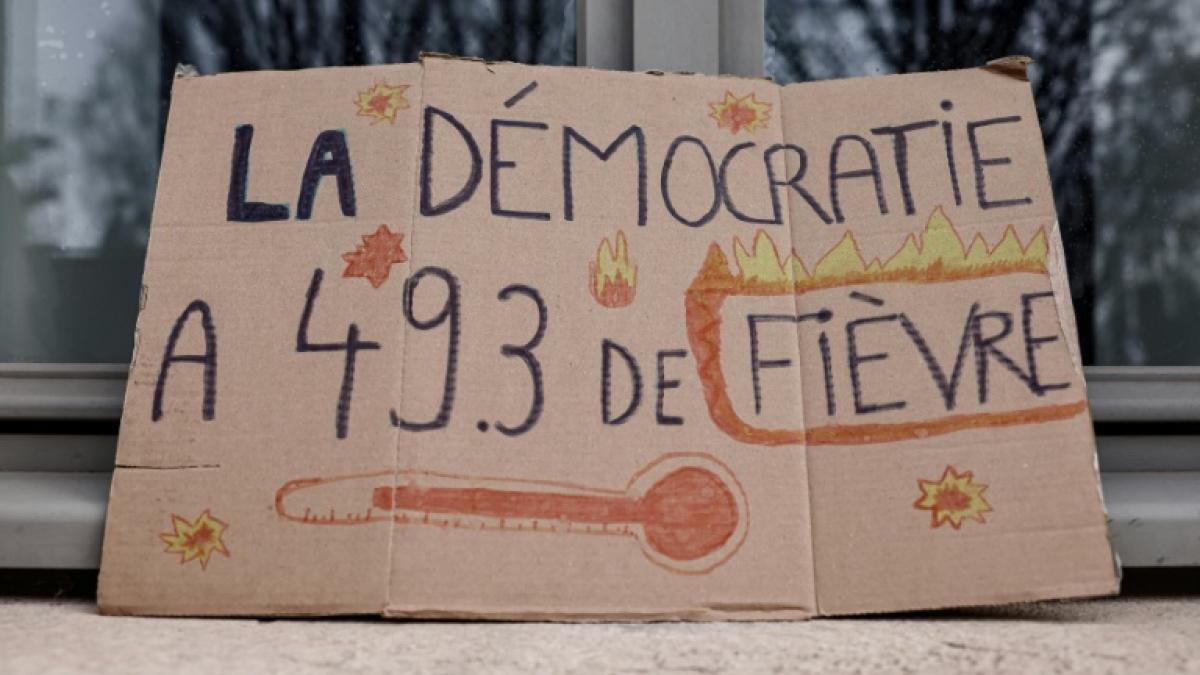 LA DÉMOCRATiE
A 49.3 DE FiÈVRE